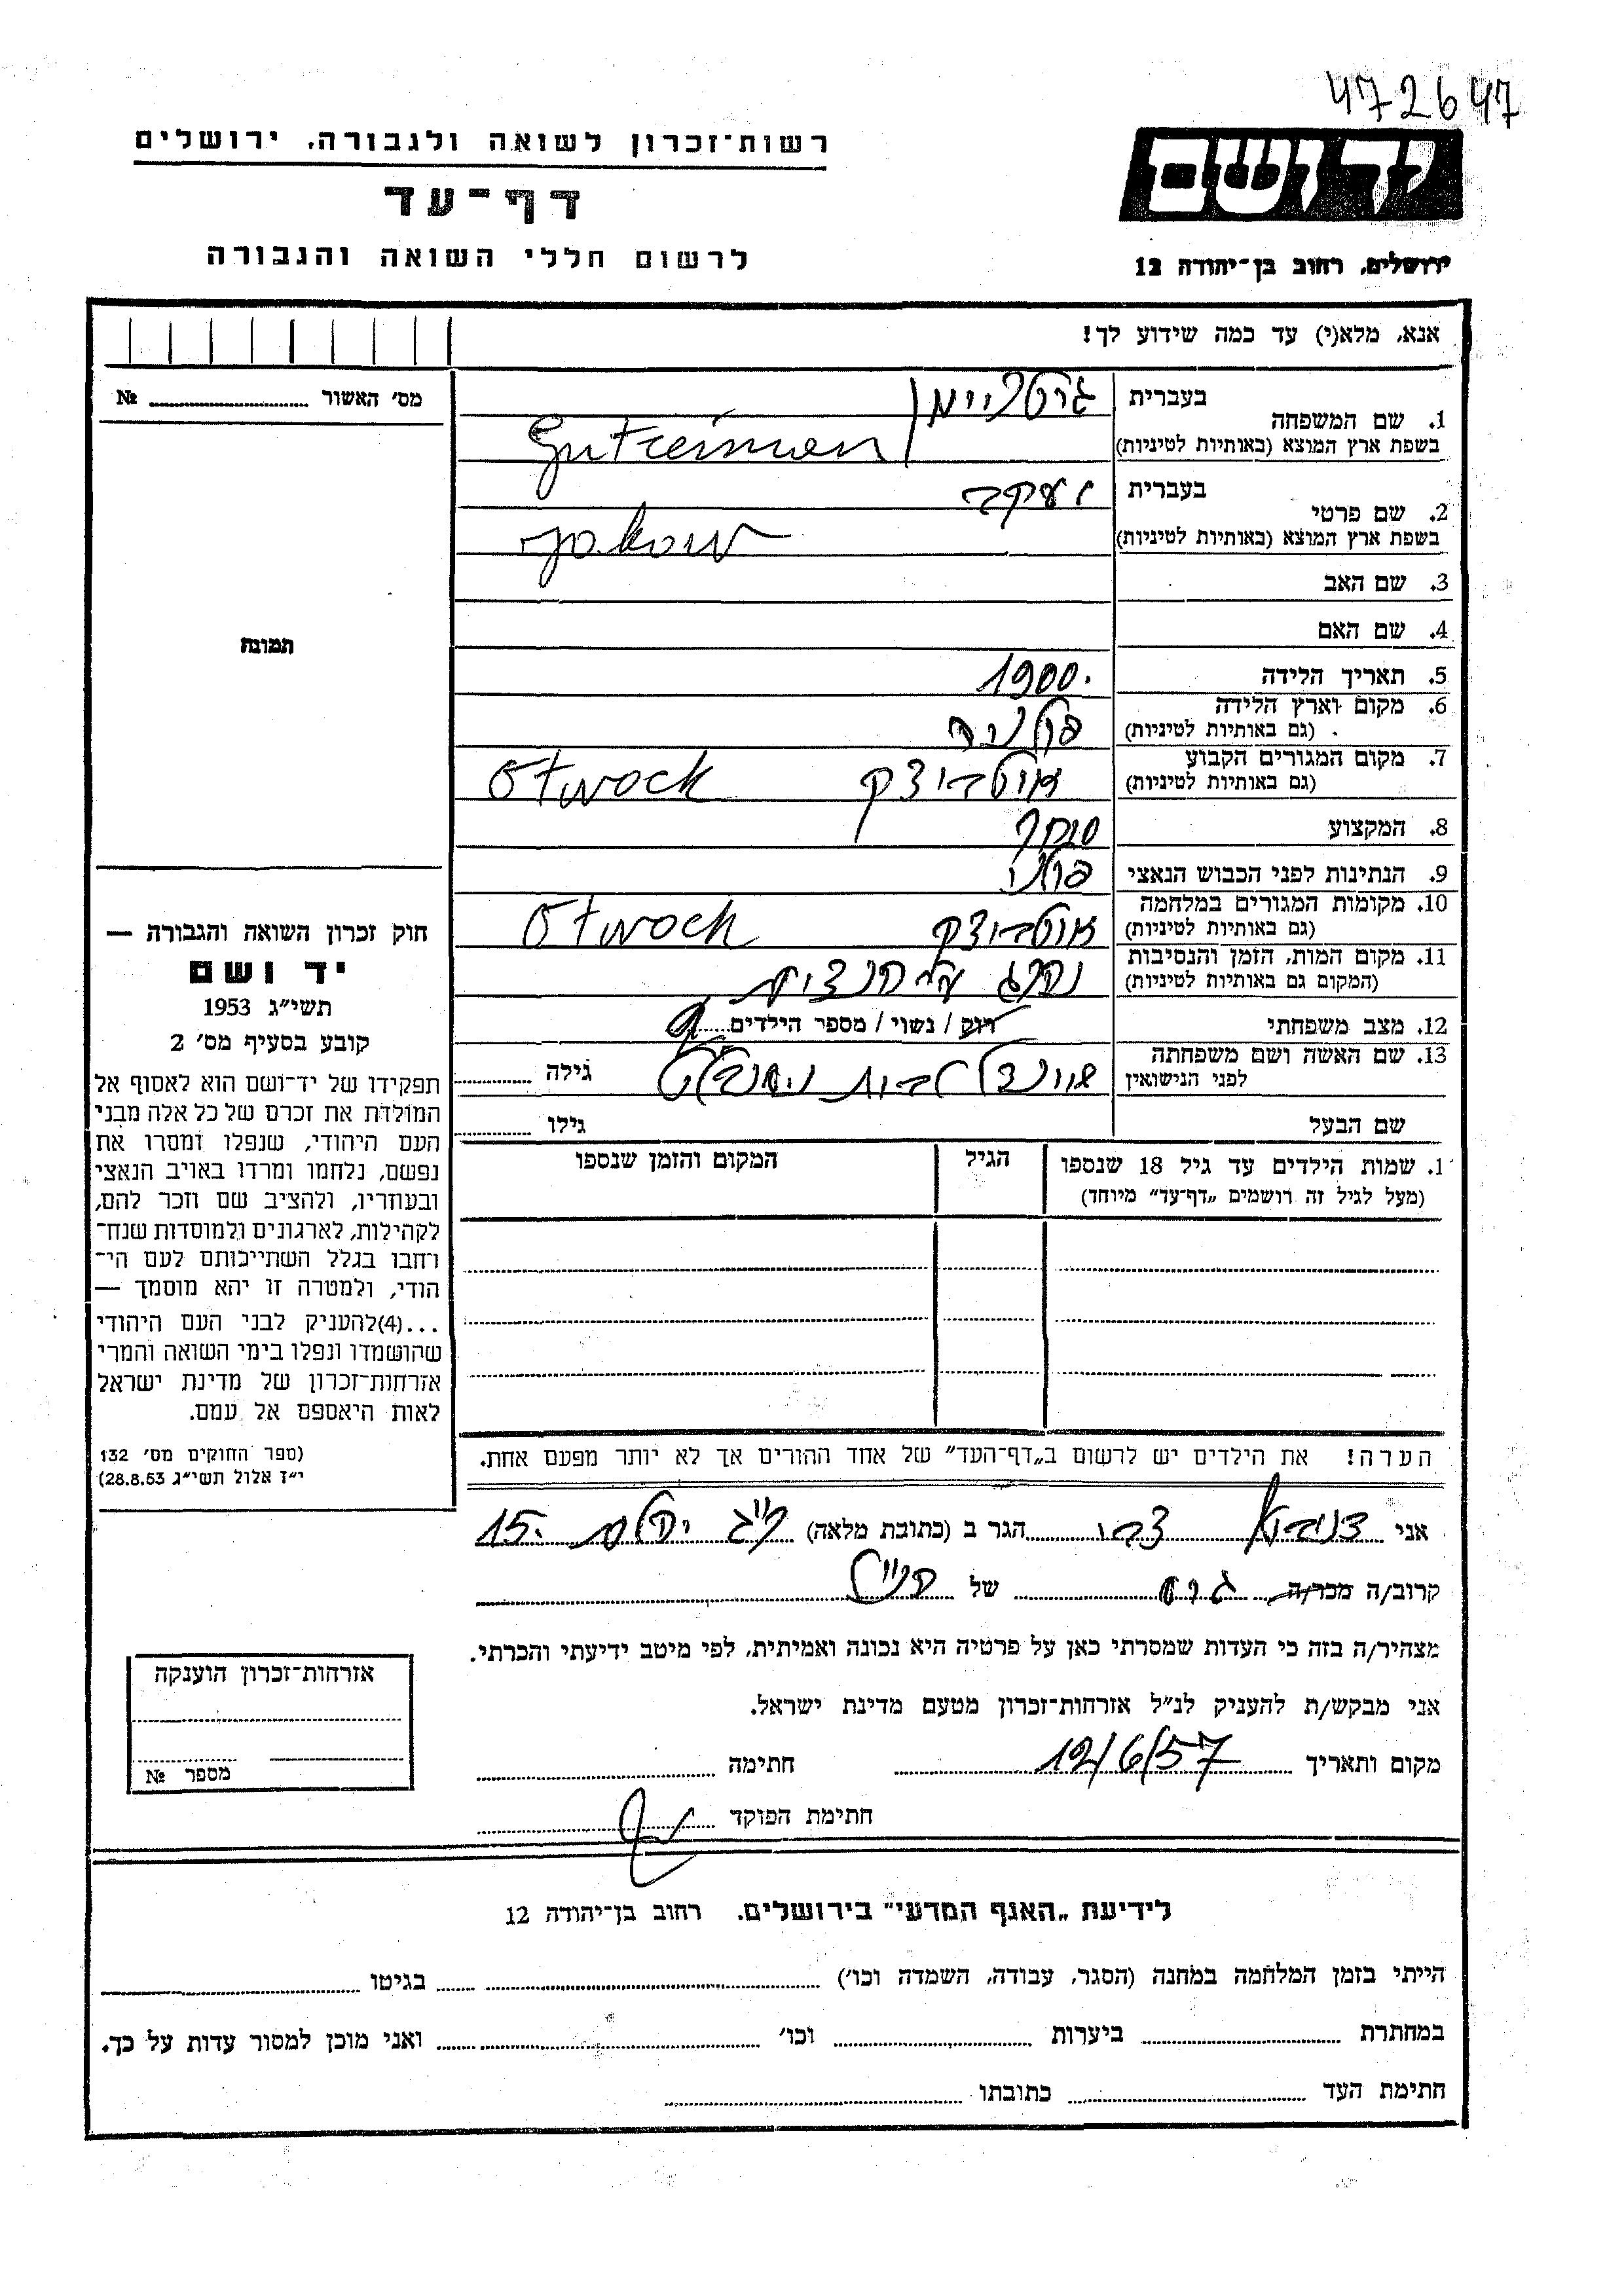 472647
רשות־זכרון לשואה ולגבורה, ירושלים
יד ושם
דף־עד
לרשום חללי השואה והגבורה
ירושלים, רחוב בן־יהודה 12
אנא, מלא(י) עד כמה שידוע לך!
מס׳ האשור № 
בעברית
1. שם המשפחה
Gutreiman
בשפת ארץ המוצא (באותיות לטיניות)
בעברית יעקב
2. שם פרטי
Jakow
בשפת ארץ המוצא (באותיות לטיניות)
3. שם האב
4. שם האם
תמונה
5. תאריך הלידה 1900.
6. מקום וארץ הלידה פולניה
(גם באותיות לטיניות)
7. מקום המגורים הקבוע אוטבוצק Otwock
(גם באותיות לטיניות)
8. המקצוע סוחר
9. הנתינות לפני הכבוש הנאצי פולני
10. מקומות המגורים במלחמה אוטבוצק Otwock
(גם באותיות לטיניות)
11. מקום המות, הזמן והנסיבות נהרג
(המקום גם באותיות לטיניות)
12. מצב משפחתי רוק / נשוי / מספר הילדים
13. שם האשה ושם משפחתה גילה
לפני הנישואין
שם הבעל גילו
1. שמות הילדים עד גיל 18 שנספו הגיל המקום והזמן שנספו
(מעל לגיל זה רושמים „דף־עד״ מיוחד)
חוק זכרון השואה והגבורה —
יד ושם
תשי״ג 1953
קובע בסעיף מס׳ 2
תפקידו של יד־ושם הוא לאסוף אל
המולדת את זכרם של כל אלה מבני
העם היהודי, שנפלו ומסרו את
נפשם, נלחמו ומרדו באויב הנאצי
ובעוזריו, ולהציב שם וזכר להם,
לקהילות, לארגונים ולמוסדות שנח־
רחבו בגלל השתייכותם לעם הי־
הודי, ולמטרה זו יהא מוסמך —
...(4)להעניק לבני העם היהודי
שהושמדו ונפלו בימי השואה והמרי
אזרחות־זכרון של מדינת ישראל
לאות היאספם אל עמם.
(ספר החוקים מס׳ 132
י״ז אלול תשי״ג 28.8.53)
הערה! את הילדים יש לרשום ב„דף־העד״ של אחד ההורים אך לא יותר מפעם אחת.
אני צבי הגר ב (כתובת מלאה) 15.
קרוב/ה מכר/ה גיס של הנ״ל
מצהיר/ה בזה כי העדות שמסרתי כאן על פרטיה היא נכונה ואמיתית, לפי מיטב ידיעתי והכרתי.
אני מבקש/ת להעניק לנ״ל אזרחות־זכרון מטעם מדינת ישראל.
מקום ותאריך 12/6/57 חתימה
חתימת הפוקד
אזרחות־זכרון הוענקה
מספר №
לידיעת „האגף המדעי״ בירושלים. רחוב בן־יהודה 12
הייתי בזמן המלחמה במחנה (הסגר, עבודה, השמדה וכו׳) בגיטו
במחתרת ביערות וכו׳ ואני מוכן למסור עדות על כך.
חתימת העד כתובתו